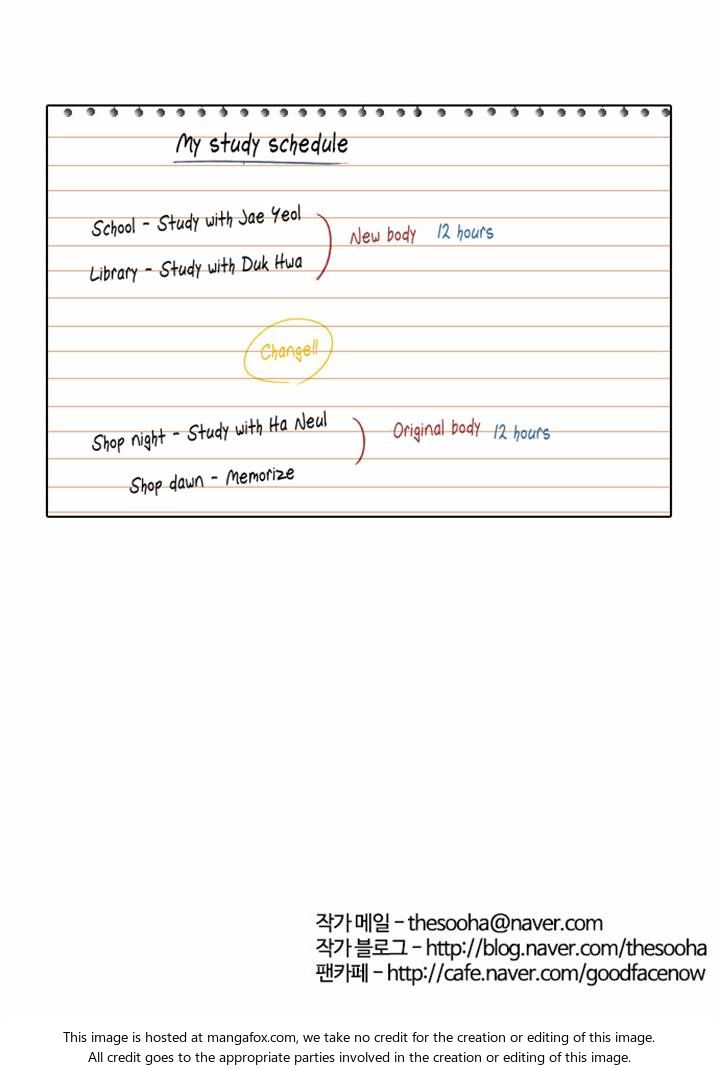 My study schedule
School - Study with Jae Yeol
New body 12 hours
Library - Study with Duk Hwa
Change!!
Shop night - Study with Ha Neul
Original body 12 hours
Shop dawn - Memorize
작가 메일 - thesooha@naver.com
작가 블로그 - http://blog.naver.com/thesooha
팬카페 - http://cafe.naver.com/goodfacenow
This image is hosted at mangafox.com, we take no credit for the creation or editing of this image.
All credit goes to the appropriate parties involved in the creation or editing of this image.